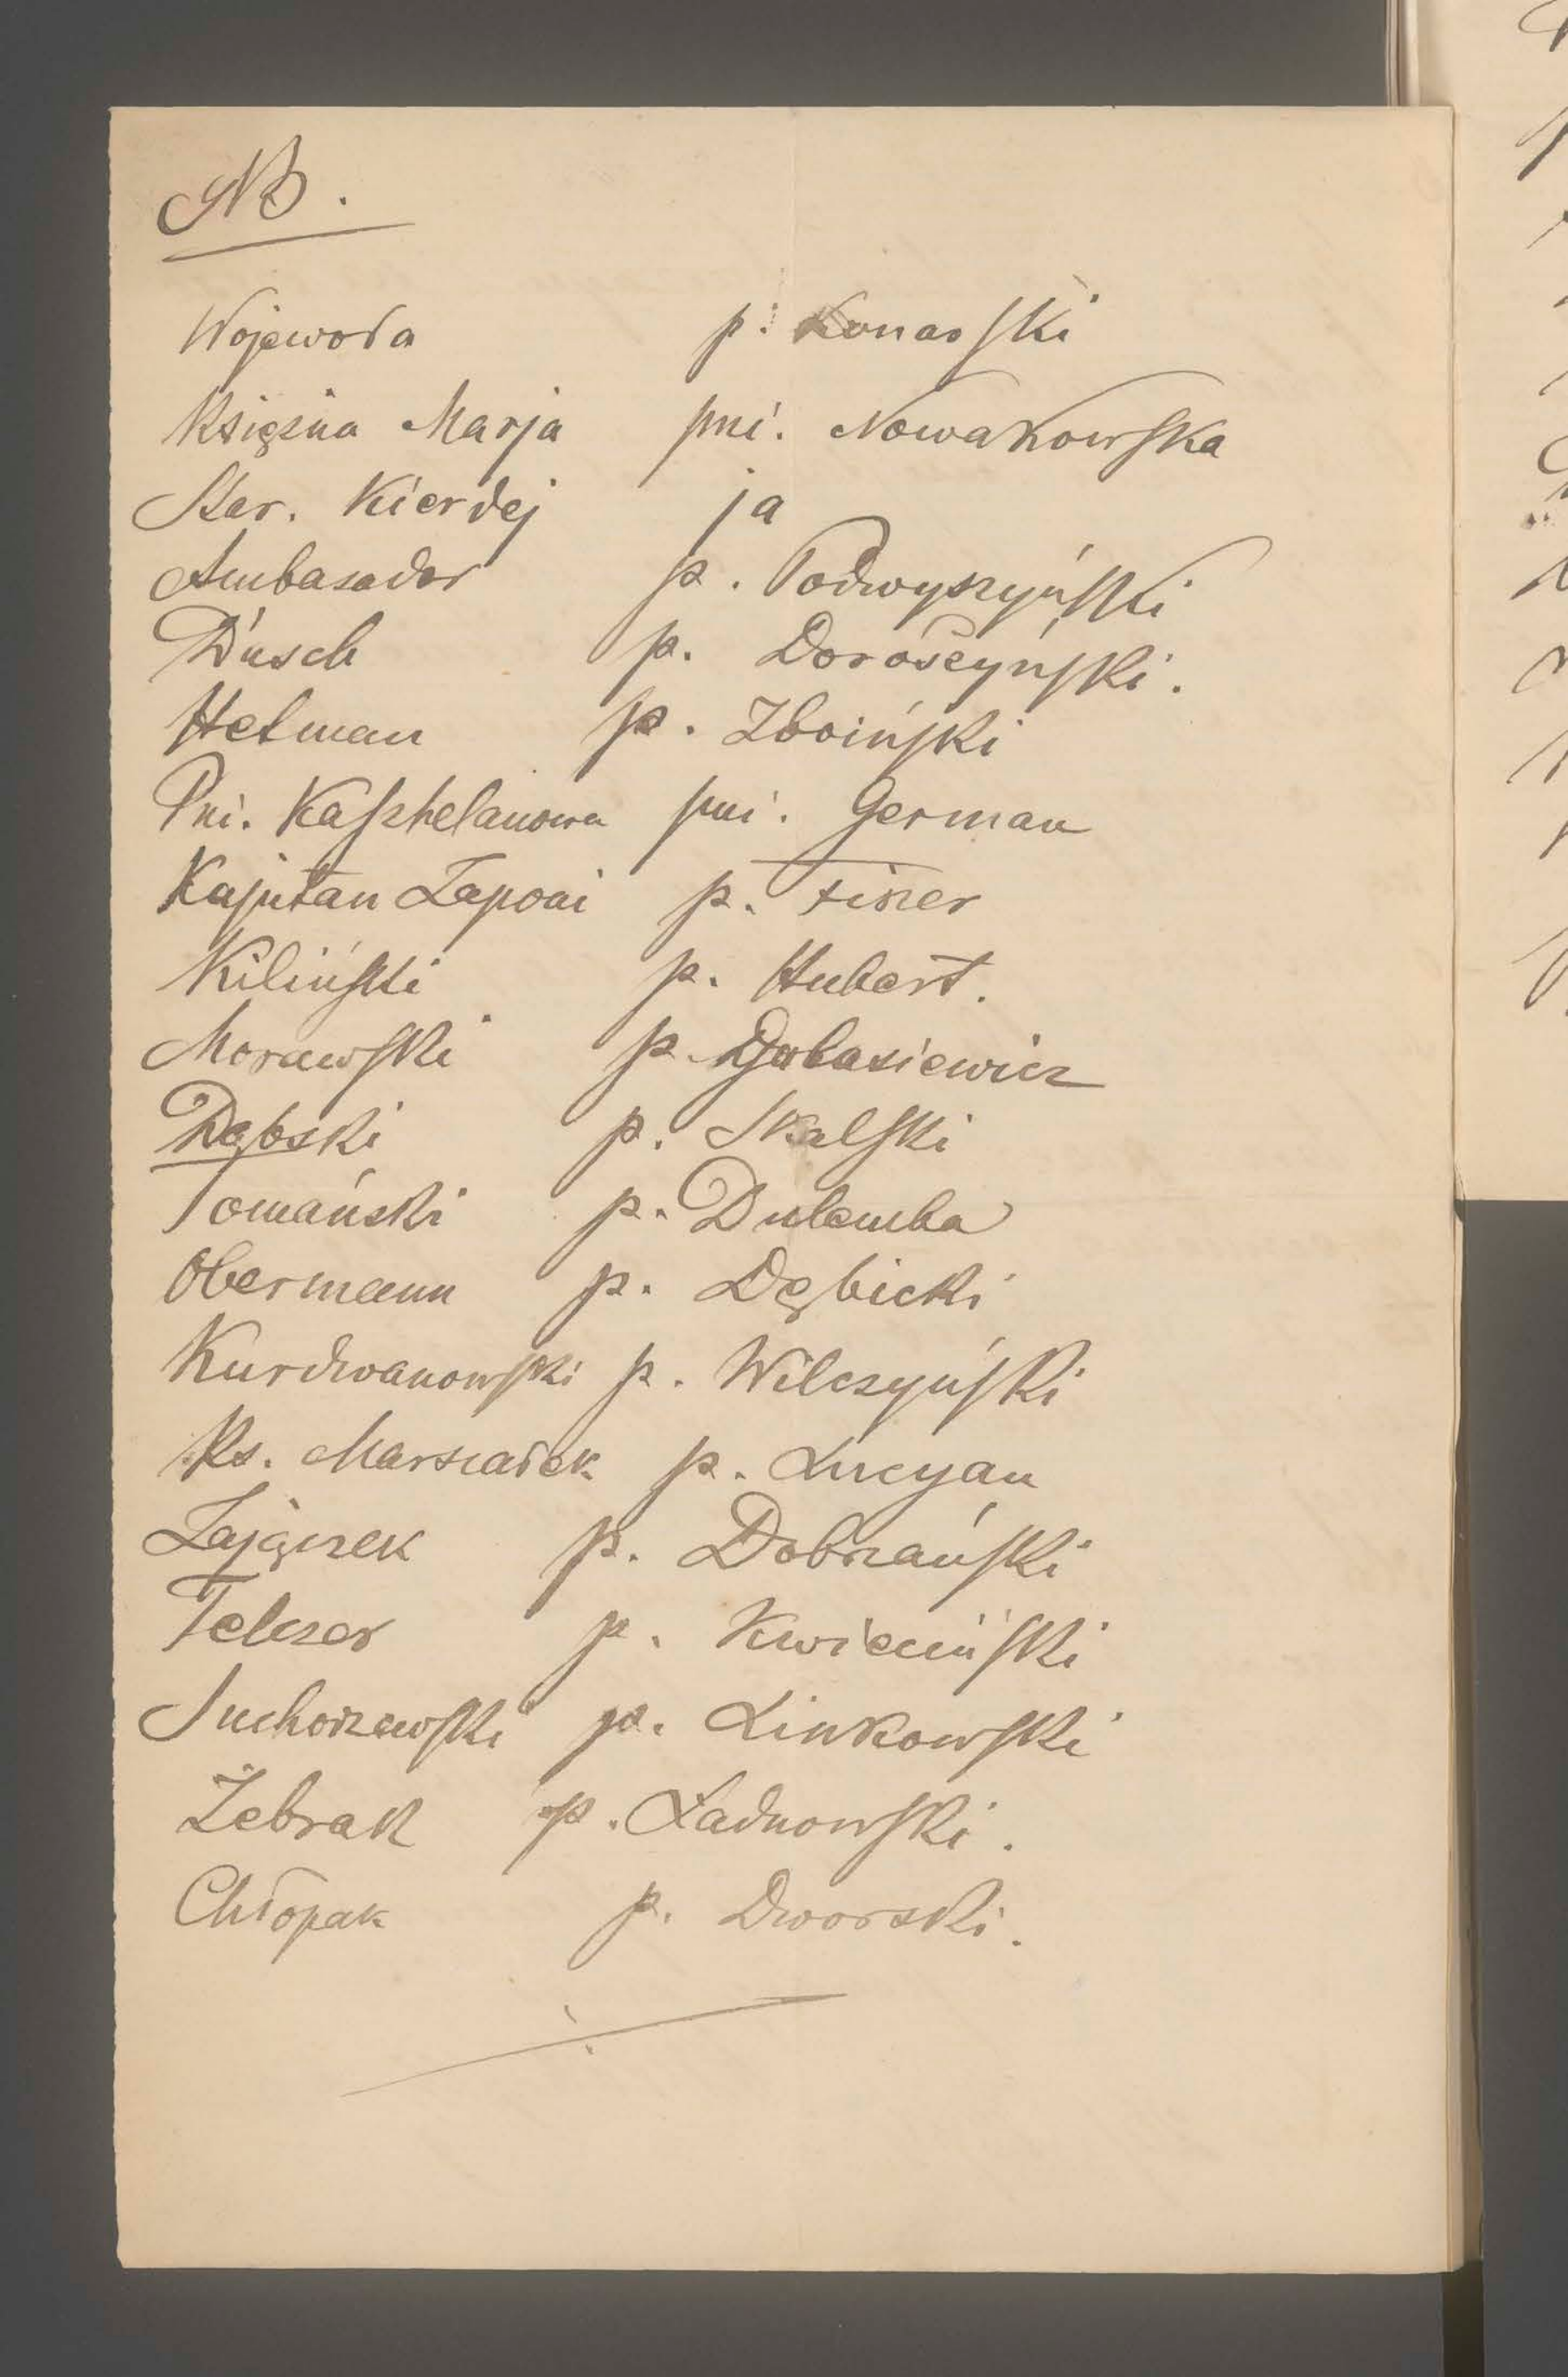 NB.
Wojewoda p. Konarski
Księżna Marja pni. Nowakowska
Star. Kierdej ja
Ambasador p. Podwyszyński
Düsch p. Doroszyński.
Hetman p. Zboiński
Pni. Kasztelanowa pni. German
Kapitan Zapoai p. Fiszer
Kiliński p. Hubert.
Morawski p. Galasiewicz
Dąbski p. Skalski
Tomański p. Dulemba
Obermann p. Dębicki
Kurdwanowski p. Wilczyński
Ks. Marszałek p. Lucyan
Zajączek p. Dobrzański
Felczer p. Kwieciński
Suchorzewski p. Linkowski
Żebrak p. Ładnowski.
Chłopak p. Dworski.